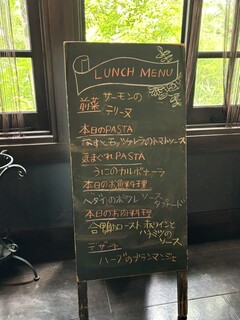 LUNCH MENU
前菜 サーモンの
テリーヌ
本日のPASTA
なすとモッツァレラのトマトソース
気まぐれPASTA
うにのカルボナーラ
本日のお魚料理
ヘダイのポワレ ソース
タップナード
本日のお肉料理
合鴨のロースト 赤ワインと
ハチミツの
ソース
デザート
ハーブのブランマンジェ